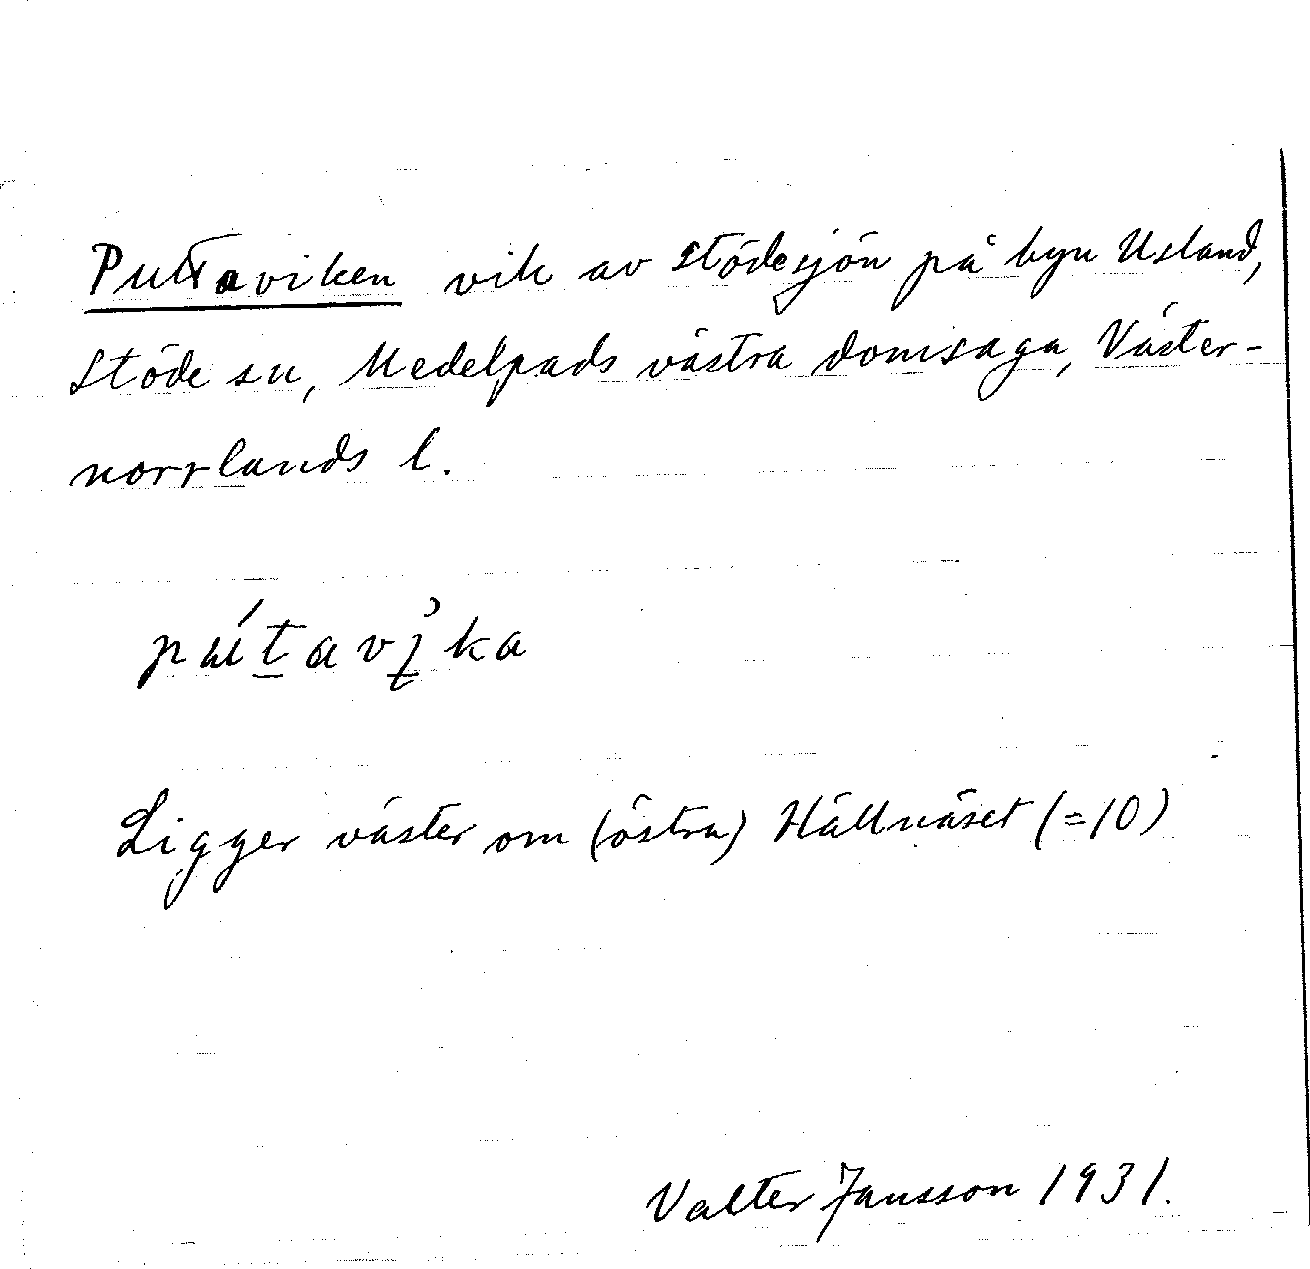 Puttaviken vik av Stödesjön på byn Usland,
Stöde sn, Medelpads västra domsaga, Väster-
norrlands l.
pútavı̨̀ka
Ligger väster om (östra) Hällnäset (=10)
Valter Jansson 1931.